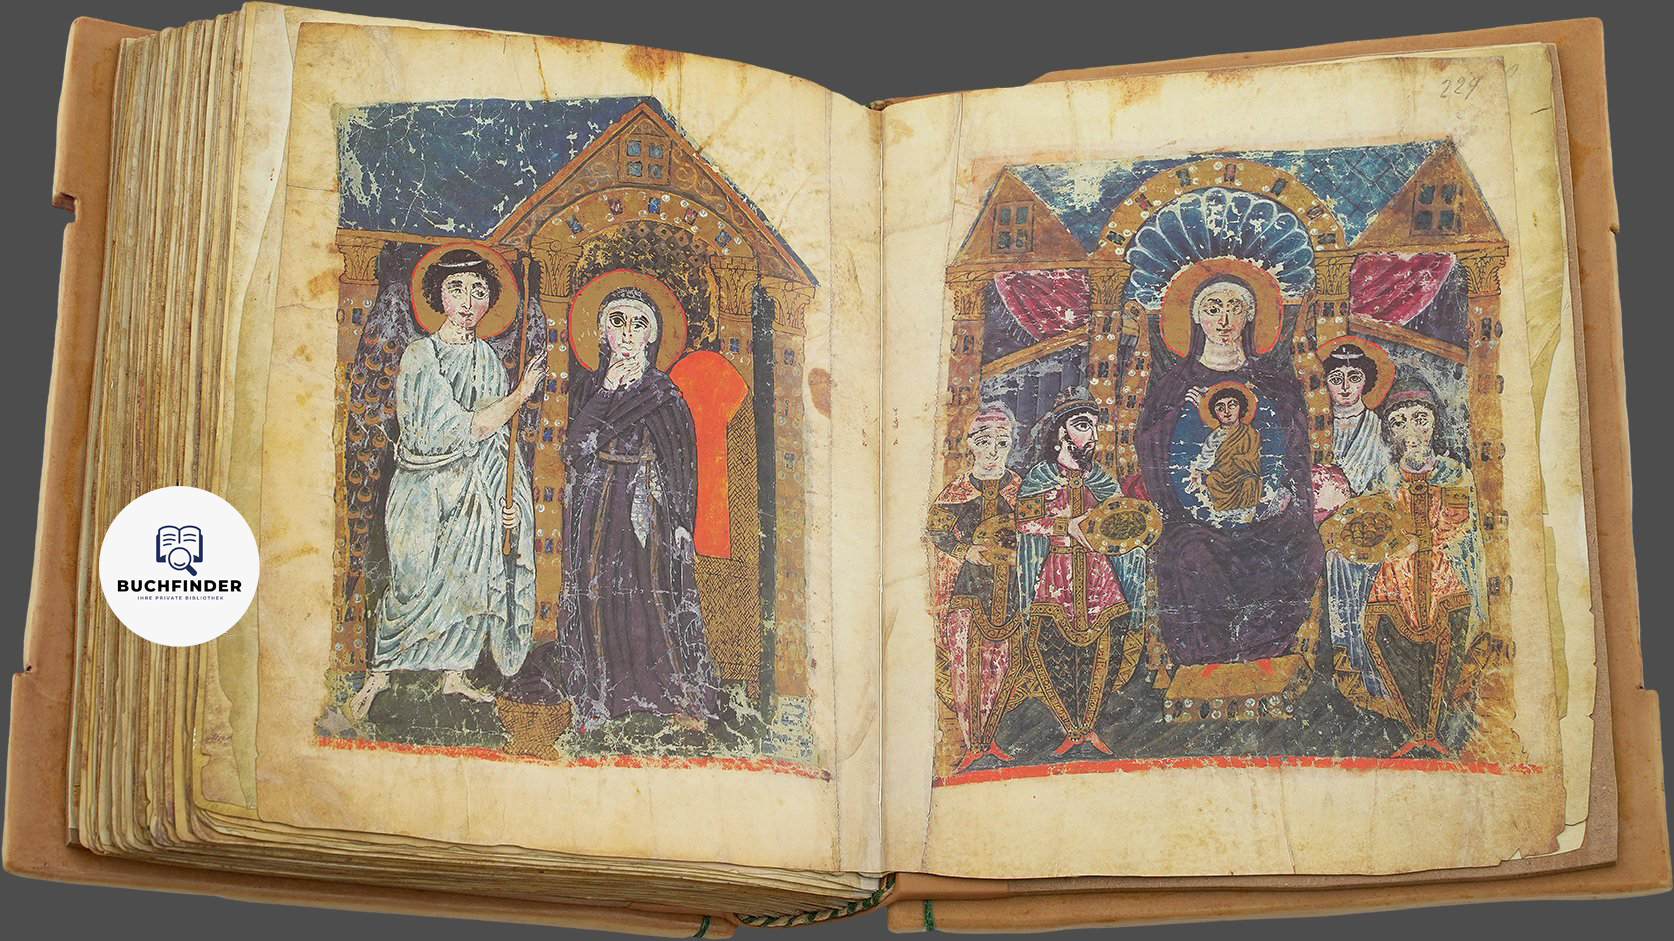 229
BUCHFINDER
IHRE PRIVATE BIBLIOTHEK